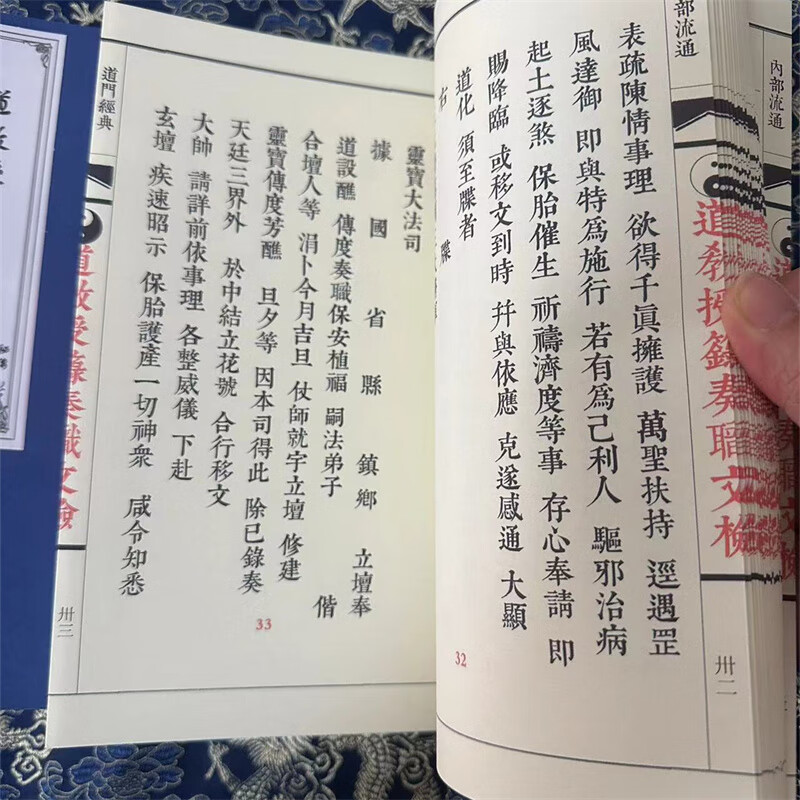 內部流通
部流通
道教授籙奏職文檢
卅二
表疏陳情事理 欲得千眞擁護 萬聖扶持 逕遇罡
風達御 即與特爲施行 若有爲己利人 驅邪治病
起土逐煞 保胎催生 祈禱濟度等事 存心奉請 即
賜降臨 或移文到時 幷與依應 克遂感通 大顯
道化 須至牒者
右 牒
32
靈寶大法司
據 國 省 縣 鎮 鄉 立壇奉
道設醮 傳度奏職保安植福 嗣法弟子 偕
合壇人等 涓卜今月吉旦 仗師就宇立壇 修建
靈寶傳度芳醮 旦夕等 因本司得此 除已錄奏
天廷三界外 於中結立花號 合行移文
大帥 請詳前依事理 各整威儀 下赴
玄壇 疾速昭示 保胎護產一切神衆 咸令知悉
33
道門經典
道教授籙奏職文檢
卅三